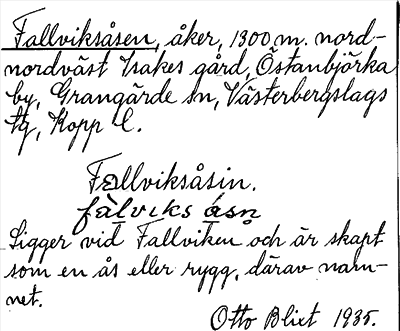 Fallviksåsen, åker, 1300 m. nord-
nordväst Isakes gård, Östanbjörka
by, Grangärde sn, Västerbergslags
tg, Kopp. l.
Fallviksåsin.
fàlviks ásn
Ligger vid Fallviken och är skapt
som en ås eller rygg, därav nam-
net.
Otto Blixt 1935.